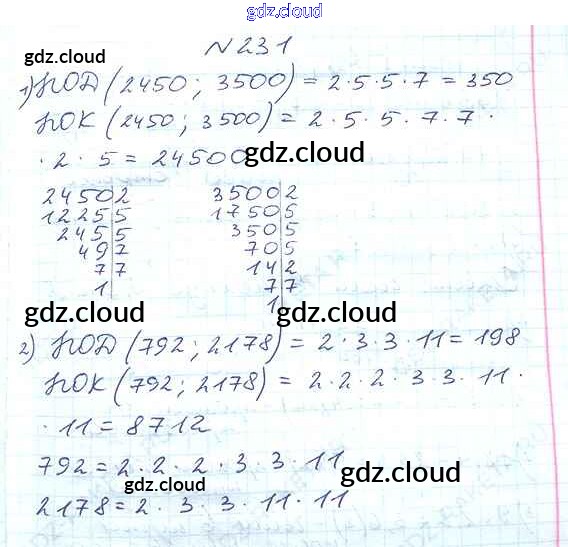 gdz.cloud
№ 231
gdz.cloud
1) НОД (2450; 3500) = 2·5·5·7 = 350
НОК (2450; 3500) = 2·5·5·7·7·
·2·5 = 24500
gdz.cloud
2450|2
1225|5
245|5
49|7
7|7
1|
3500|2
1750|5
350|5
70|5
14|2
7|7
1|
gdz.cloud
gdz.cloud
2) НОД (792; 2178) = 2·3·3·11 = 198
НОК (792; 2178) = 2·2·2·3·3·11·
·11 = 8712
792 = 2·2·2·3·3·11
gdz.cloud
gdz.cloud
2178 = 2·3·3·11·11